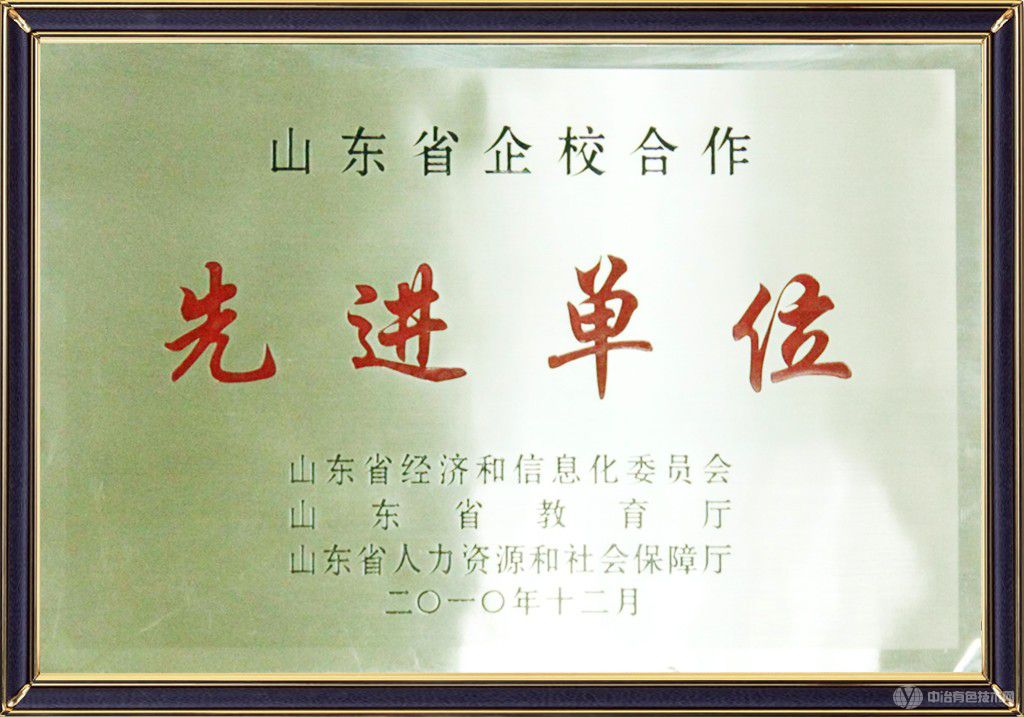 山东省企校合作
先进单位
山东省经济和信息化委员会
山东省教育厅
山东省人力资源和社会保障厅
二〇一〇年十二月
中冶有色技术网